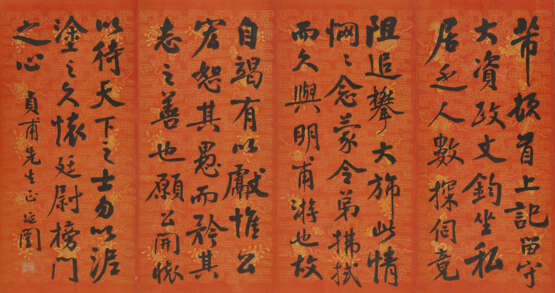 芾頓首上記留守
大資政丈鈞坐私
居乏人數探伺竟
阻追攀大旆此情
惘〻念蒙令弟拂拭
而久與明甫游也故
自竭有以獻惟公
宏恕其愚而矜其
志之善也願公開懷
以待天下之士勿以泥
塗之久懷廷尉榜門
之心
貞甫先生正 延闓